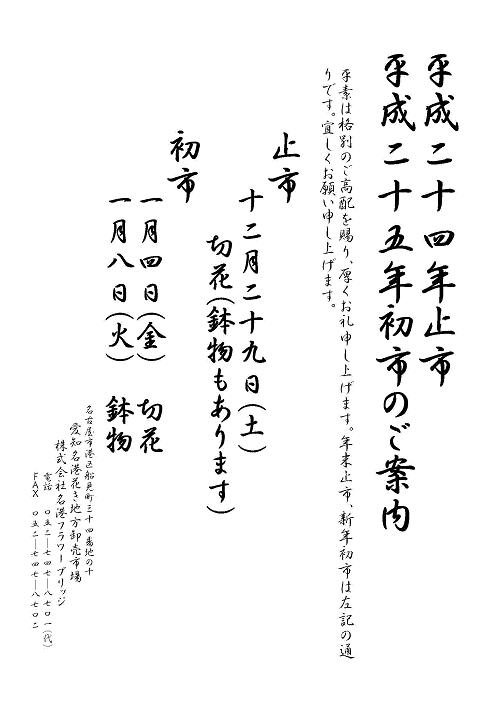 平成二十四年止市
平成二十五年初市のご案内
平素は格別のご高配を賜り、厚くお礼申し上げます。年末止市、新年初市は左記の通
りです。宜しくお願い申し上げます。
止市
十二月二十九日(土)
切花(鉢物もあります)
初市
一月四日(金) 切花
一月八日(火) 鉢物
名古屋市港区船見町三十四番地の十
愛知名港花き地方卸売市場
株式会社名港フラワーブリッジ
電話 〇五二―七四七―八七〇一(代)
FAX 〇五二―七四七―八七〇二